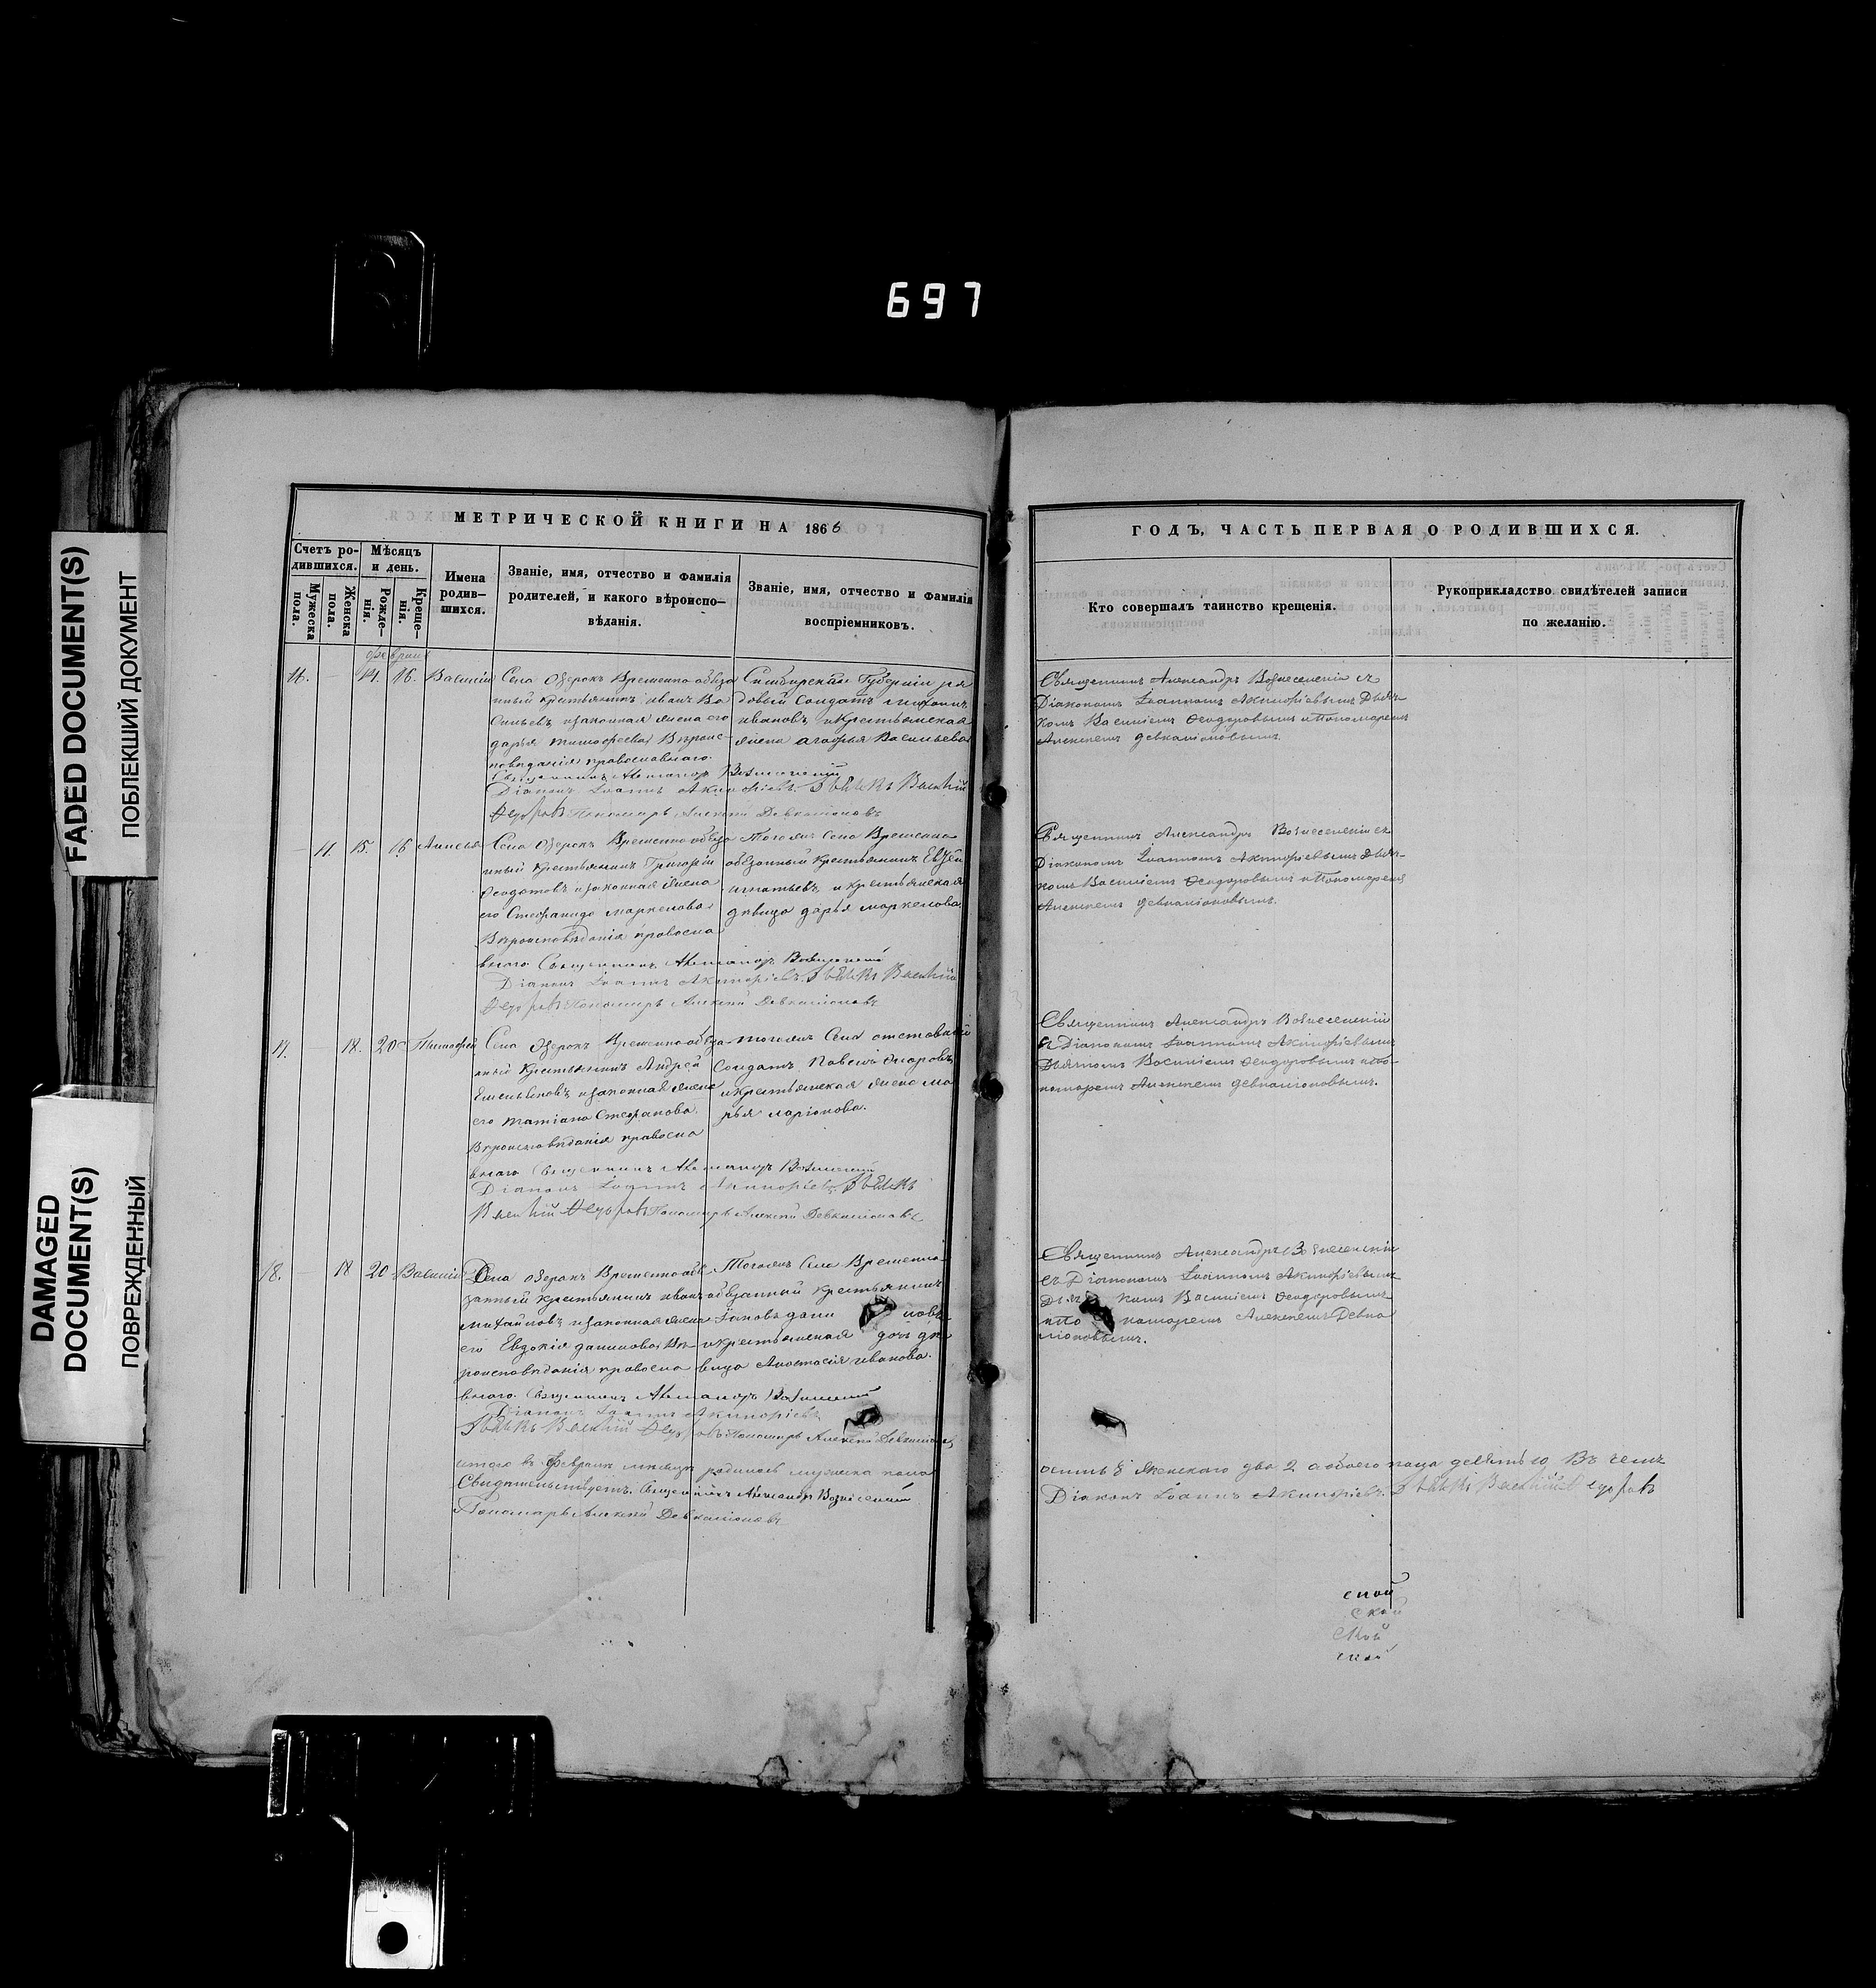 697
FADED DOCUMENT(S)
ПОБЛЕКШИЙ ДОКУМЕНТ
DAMAGED
DOCUMENT(S)
ПОВРЕЖДЕННЫЙ
МЕТРИЧЕСКОЙ КНИГИ НА 1866
Счетъ ро-
дившихся.
Мѣсяцъ
и день.
Мужеска
пола.
Женска
пола.
Рожде-
нія.
Креще-
нія.
Имена
родив-
шихся.
Званіе, имя, отчество и фамилія
родителей, и какого вѣроиспо-
вѣданія.
Званіе, имя, отчество и фамилія
воспріемниковъ.
февраля
14. 16. Василій
Села Озерокъ Временно обяза
нный крестьянинъ иванъ Ва
сильевъ изаконная жена его
дарья тимофеева Вѣроис-
повѣданія православнаго.
Священникъ Александръ Вознесенскій
Діаконъ Іоаннъ Акинфіевъ. Дьячекъ Василій
Федоровъ Пономарь Алексѣй Девкаліоновъ
Симбирской Губерніи ря
довый Солдатъ
ивановъ икрестьянская
жена агафья Васильева
11. 15. 16 Анисья
Села Озерокъ Временно обяза
нный крестьянинъ Григорій
Феодотовъ изаконная жена
его Стефанида маркелова
Вѣроисповѣданія правосла
внаго Священникъ Александръ Вознесенскій
Діаконъ Іоаннъ Акинфіевъ. Дьячекъ Василій
Федоровъ Пономарь Алексѣй Девкаліоновъ
Тогожъ Села Временно
обязанный крестьянинъ Евсей
игнатьевъ и крестьянская
дѣвица дарья маркелова.
17. 18. 20 Тимофей
Села Озерокъ Временно обяза
нный Крестьянинъ Андрей
Емельяновъ изаконная жена
его татіана Стефанова.
Вѣроисповѣданія правосла
внаго Священникъ Александръ Вознесенскій
Діаконъ Іоаннъ Акинфіевъ Дьячекъ
Василій Федоровъ Пономарь Алексѣй Девкаліоновъ
тогожъ Села отставный
Солдатъ Павелъ
икрестьянская жена ма
рья ларіонова.
18. 18 20 Василій
Села озерокъ Временно обя
занный крестьянинъ иванъ
михайловъ изаконная жена
его Евдокія данилова Вѣ-
роисповѣданія правосла
внаго. Священникъ Александръ Вознесенскій
Діаконъ Іоаннъ Акинфіевъ
Дьячекъ Василій Федоровъ Пономарь Алексѣй Девкаліоновъ
Тогожъ Села Временно
обязанный крестьянинъ
Іаковъ дани ловъ
икрестьянская дочь дѣ
вица Анастасія иванова.
итого въ Февралѣ мѣсяцѣ родилось мужеска пола
Свидѣтельствуетъ. Священникъ Александръ Вознесенскій
Пономарь Алексѣй Девкаліоновъ
ГОДЪ, ЧАСТЬ ПЕРВАЯ О РОДИВШИХСЯ.
Кто совершалъ таинство крещенія.
Рукоприкладство свидѣтелей записи
по желанію.
Священникъ Александръ Вознесенскій съ
Діакономъ Іоанномъ Акинфіевымъ Дьяч-
комъ Василіемъ Феодоровымъ иПономаремъ
Алексеемъ девкаліоновымъ.
Священникъ Александръ Вознесенскій съ
Діакономъ Іоанномъ Акинфіевымъ Дьяч-
комъ Василіемъ Феодоровымъ иПономаремъ
Алексеемъ девкаліоновымъ.
Священникъ Александръ Вознесенскій
съ Діакономъ Іоанномъ Акинфіевымъ
Дьячкомъ Василіемъ Феодоровымъ ипо-
номаремъ Алексеемъ девкаліоновымъ.
Священникъ Александръ Вознесенскій
съ Діакономъ Іоанномъ Акинфіевымъ
Дьяч комъ Василіемъ Феодоровымъ
ипо номаремъ Алексеемъ Девка
ліоновымъ.
осмль 8 женскаго два 2 а обоего пола десять 10 Въ семъ
Діаконъ Іоаннъ Акинфіевъ. Дьячекъ Василій Федоровъ
ской
ской
ской
ской